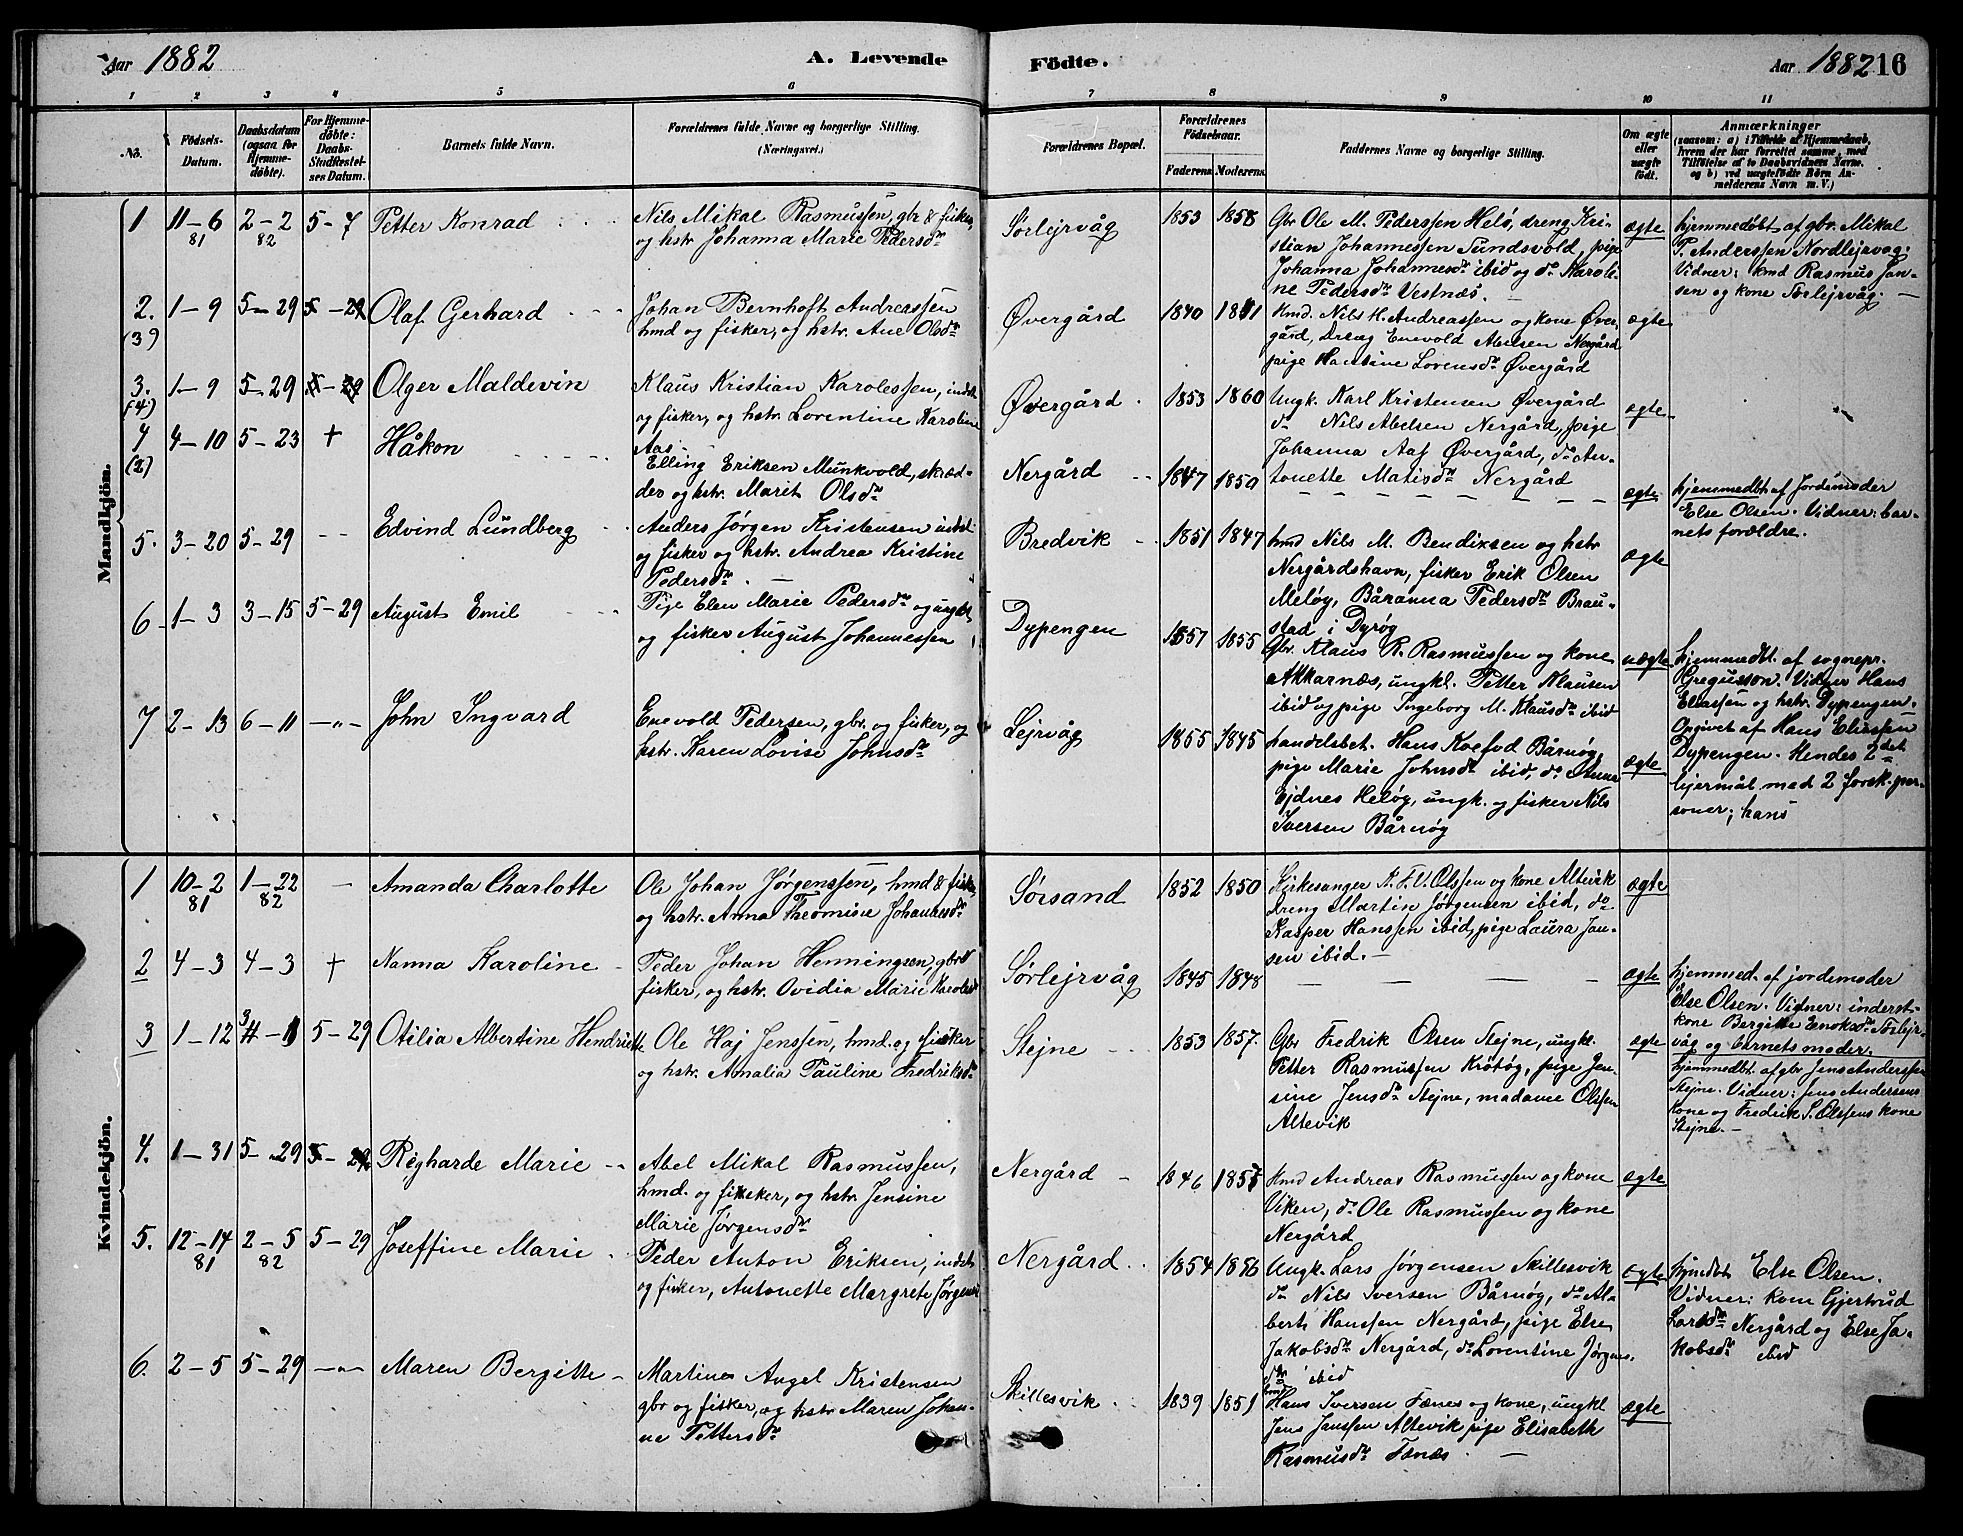 Aar 1882 A. Levende Födte. Aar 1882 16
1 2 3 4 5 6 7 8 9 10 11
No. Födsels-Datum. Daabsdatum (ogsaa for Hjemmedöbte). For Hjemmedöbte: Daabs-Stadfæstelses Datum. Barnets fulde Navn. Forældrenes fulde Navne og borgerlige Stilling. (Næringsvei.) Forældrenes Bopæl. Forældrenes Födselsaar. Faderens. Moderens. Faddernes Navne og borgerlige Stilling. Om ægte eller uægte födt. Anmærkninger (saasom: a) i Tilfælde af Hjemmedaab, hvem der har forrettet samme, med Tilföielse af to Daabsvidners Navne, og b) ved uægtefödte Börn Anmelderens Navn m. V.)
Mandkjön.
1 11-6 81 2-2 82 5-7 Petter Konrad
Nils Mikal Rasmussen, gbr & fisker,
og hstr Johanna Marie Pedersdr
Sørlejrvåg 1853 1858
Gbr Ole M. Pederssen Helø, dreng Kri-
stian Johannessen Sundsvold, pige
Johanna Johannesdr ibid og do Karoli-
ne Pedersdr Vestnæs.
ægte
hjemmedøbt af gbr. Mikal
P. Anderssen Nordlejrvåg.
Vidner: hmd Rasmus Jan-
sen og kone Sørlejrvåg.
2. (3) 1-9 5-29 5-29 Olaf Gerhard
Johan Bernhoft Andreassen
hmd og fisker, og hstr. Ane Olsdr
Øvergård 1840 1841
Hmd. Nils H. Andreassen og kone Øver-
gård, Dreng Enevold Abelsen Nergård
pige Hansine Lorensdr Øvergård
ægte
3. (4) 1-9 5-29 5-29 Olger Maldevin
Klaus Kristian Karolessen, indst
og fisker, og hstr. Lorentine Karoline
Aas
Øvergård 1853 1860
Ungk. Karl Kristensen Øvergård
do Nils Abelsen Nergård, pige
Johanna Aas Øvergård, do An-
tonette Matisdr Nergård
ægte
4 (2) 4-10 5-23 + Håkon
Elling Eriksen Munkvold, skræd-
der og hstr. Marit Olsdr
Nergård 1847 1850
ægte
hjemmedbt af Jordemoder
Else Olsen. Vidner: bar-
nets forældre.
5. 3-20 5-29 Edvind Lundberg
Anders Jørgen Kristensen indst
og fisker og hstr. Andrea Kristine
Pedersdr
Bredvik 1851 1847
hmd Nils M. Bendixsen og hstr
Nergårdshavn, fisker Erik Olsen
Meløy, Båranna Pedersdr Brau-
stad i Dyrøg
ægte
6 1-3 3-15 5-29 August Emil
Pige Elen Marie Pedersdr og ungkl
og fisker August Johannessen
Dypengen 1857 1855
Gbr. Klaus R. Rasmussen og kone
Akkarnæs, ungkl. Petter Klausen
ibid og pige Ingeborg M. Klausdr ibid
uægte
hjemmedbt. af sognepr.
Gregusson. Vidner Hans
Eliassen og hstr. Dypengen.
Opgivet af Hans Eliassen
Dypengen. Hendes 2det
lejermål med 2 forsk. per-
soner; hans
7 2-13 6-11 John Ingvard
Enevold Pedersen, gbr. og fisker, og
hstr. Karen Lovise Johnsdr
Lejrvåg 1855 1845
handelsbet. Hans Koefod Bårnøg
pige Marie Johnsdr ibid, do Anna
Ejdnes Heløy, ungk. og fisker Nils
Iversen Bårnøg
ægte
Kvindekjön.
1 10-2 81 1-22 82 - Amanda Charlotte
Ole Johan Jørgenssen, hmd & fisker,
og hstr. Anna Theomine Johannesdr
Sørsand 1852 1850
Kirkesanger A. F. U. Olssen og kone Altevik
Dreng Martin Jørgensen ibid, do
Kasper Hanssen ibid, pige Laura Jan-
sen ibid.
ægte
2 4-3 4-3 + Nanna Karoline
Peder Johan Henningsen, gbr &
fisker, og hstr. Ovidia Marie Karolesdr
Sørlejrvåg 1845 1848
ægte
hjemmed. af jordemoder
Else Olsen. Vidner: inderst-
kone Bergitte Enoksdr Sørlejr-
våg og barnets moder.
3 1-12 5-29 Otilia Albertine Hendriette
Ole Haj Jenssen, hmd. og fisker
og hstr. Amalia Pauline Fredriksdr
Stejne 1853 1857.
Gbr Fredrik Olsen Stejne, ungkl.
Petter Rasmussen Krøtøg, pige Jen-
sine Jensdr Stejne, madame Olssen
Altevik
ægte
hjemmedbt. af gbr Jens Anderssen
Stejne. Vidner: Jens Anderssens
kone og Fredrik S. Olssens kone
Stejne.
4. 1-31 5-29 5-29 Righarde Marie
Abel Mikal Rasmussen,
hmd. og fisker, og hstr. Jensine
Marie Jørgensdr
Nergård 1846 1857
Hmd Andreas Rasmussen og kone
Viken, do Ole Rasmussen og kone
Nergård
ægte
5. 12-14 81 2-5 82 5-29 Joseffine Marie
Peder Anton Eriksen, indst
og fisker, Antonette Margrete Jørgensdr
Nergård 1854 1856
Ungk. Lars Jørgensen Skillesvik
do Nils Iversen Bårnøg, do Al-
bert Hanssen Nergård, pige Else
Jakobsdr Nergård, do Lorentine Jørgens-
dr ibid
ægte
hjmdbt Else Olsen.
Vidner: kone Gjertrud
Larsdr Nergård og Else Ja-
kobsdr ibid
6. 2-5 5-29 Maren Bergitte
Martines Angel Kristensen
gbr og fisker, og hstr Maren Johan-
ne Pettersdr
Skillesvik 1839 1851
hmd Hans Iversen Fænes og kone, ungkl
Jens Janssen Altevik pige Elisabeth
Rasmusdr Fænæs
ægte